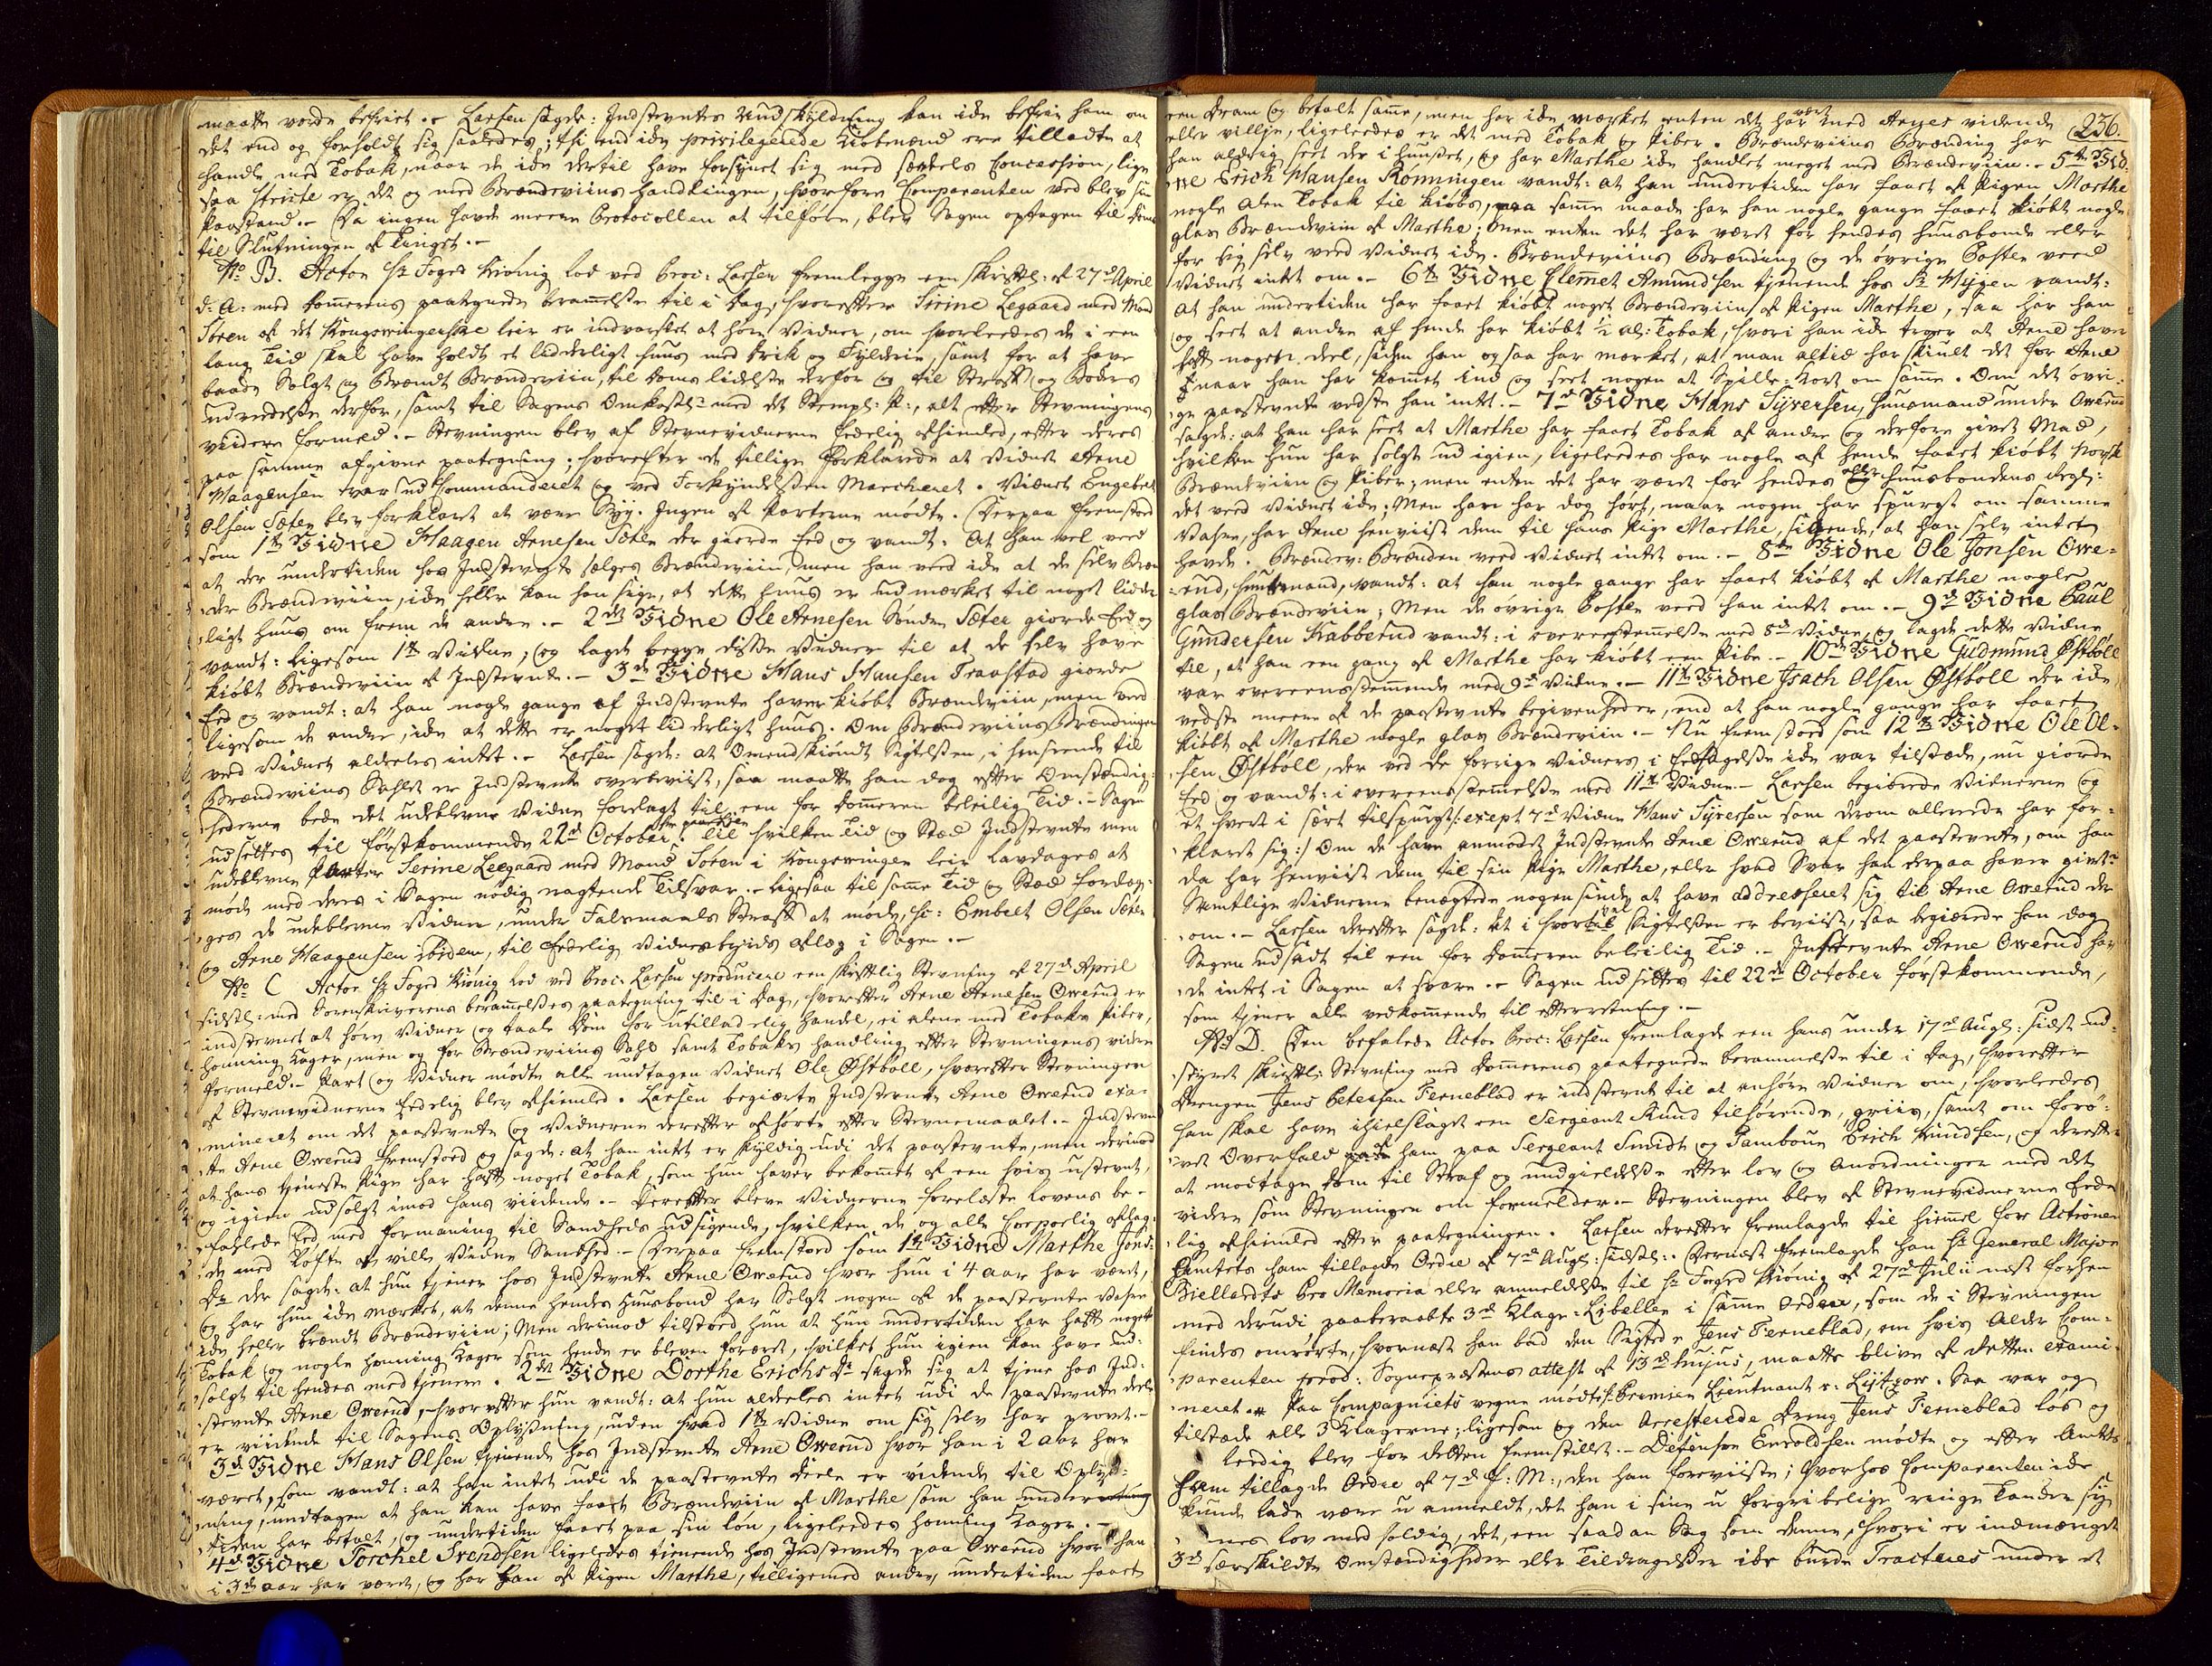 maatte vorde befriet. Larsen sagde: Indstevntes Undskyldning kan ikke befrie ham om
det end og forholdt sig saaledes, thi end ikke privilegerede Kiøbmænd ere tilladte at
handle med Tobak, naar de ikke dertil have forsynet sig med særdeles Concession, lige
saa stricte er det og med Brændeviins Handlingen, hvorfore Comparenten ved blev sin
Paastand. Da ingen havde meere Protocollen at tilføre, blev Sagen optagen til Doms
til Slutningen af Tinget.
No. B. Actor Hr. Foged Kiønig lod ved Proc: Larsen fremlegge een skriftl: af 27de April
d: A: med Dommerens paategnede berammelse til i Dag, hvorefter Serine Legaard med Mand
Søren af det Kongswingerske leir er indvarslet at høre Vidner, om hvorledes de i een
lang Tid skal have holdt et lidderligt huus med Drik og Fylderie, samt for at have
baade Solgt og Brændt Brændeviin, til Doms lidelse derfor og til Straff og Bøders
udredelse derfor, samt til Sagens Omkostn: med det Stempl: P:, alt efter Stevningens
videre formeld. Stevningen blev af Stevnevidnerne Eedelig afhiemlet, efter deres
paa samme afgivne paategning; hvorefter de tillige forklarede at Vidnet Arne
Haagensen var ud Commanderet og ved Forkyndelsen Marcheret. Vidnet Engebret
Olsen Sæter blev forklaret at være Syg. Ingen af Parterne mødte. Derpaa fremstod
som 1te Vidne Haagen Arnesen Sæter der giorde Eed og vandt: At han vel veed
at der undertiden hos Indstevnte sælges Brændeviin, men han veed ikke at de selv Bræn-
der Brændeviin, ikke heller kan han sige, at dette huus er udmærket til noget lidder-
ligt huus om frem de andre. 2det Vidne Ole Arnesen Søndre Sæter giorde Eed og
vandt: ligesom 1te Vidne, og lagde begge disse Vidner til at de selv have
kiøbt Brændeviin af Indstevnte. 3de Vidne Hans Hansen Traastad giorde
Eed og vandt: at han nogle gange af Indstevnte haver kiøbt Brændeviin, men ved
ligesom de andre, ikke at dette er noget lidderligt huus. Om Brændeviins Brændingen
ved Vidnet aldeeles intet. Larsen sagde: at Omendskiøndt Sigtelsen, i henseende til
Brændeviins Sahlet er Indstevnte overbeviist, saa maatte han dog efter Omstændig-
hederne bede det udeblevne Vidne fordagt til een for Dommeren beleilig Tid. Sagen
udsættes til førstkommende 22de October, til hvilken Tid og Stæd Indstevnte men
udeblevne Parter Serine Leegaard med Mand Søren i Kongswingers leir Lavdages at
møde med deres i Sagen nødig nagtende Tilsvar. ligesaa til samme Tid og Stæd fordag-
ges de udeblevne Vidner, under Falsmaals Straff at møde, sc: Embret Olsen Sæter
og Arne Haagensen ibidem, til Eedelig Vidnesbyrds aflæg i Sagen.
No. C Actor Hr. Foged Kiønig lod ved Proc: Larsen producere een skriftlig Stevning af 27de April
sidstl: med Sorenskriverens berammelses paategning til i Dag, hvorefter Arne Arnesen Owerud er
indstevnet at høre Vidner og taale Dom for utilladelig Handel, ei alene med Tobaks Piber,
honning Kager, men og for Brændeviins Sahl samt Tobaks handling efter Stevningens videre
formeld. Part og Vidner mødte alle undtagen Vidnet Ole Østbøll, hvorefter Stevningen
af Stevnevidnerne Eedelig blev afhiemlet. Larsen begiærte Indstevnte Arne Owerud exa-
mineret om det paastevnte og Vidnerne derefter afhørte efter Stevnemaalet. Indstevn-
te Arne Owerud fremstod og sagde: at han intet er skyldig udi det paastevnte, men derimod
at hans tieneste Pige har haft noget Tobak, som hun haver bekommet af een hvis ustevnt,
og igien udsolgt imod hans vidende. Derefter bleve Vidnerne forelæste Lovens be-
fahlede Eed med formaning til Sandheds udsigende, hvilken de og alle Corporlig aflag-
de med Løfte at ville Vidne Sandhed. Derpaa fremstod som 1te Vidne Marthe Jons-
Dr. der sagde: at hun tjener hos Indstevnte Arne Owerud hvor hun i 4 aar har været,
og har hun ikke mærket, at denne hendes Huusbond har Solgt nogen af de paastevnte Vahre
ikke heller brændt Brændeviin; Men derimod tilstod hun at hun undertiden har haft noget
Tobak og nogle honning Kager som hende er bleven foræret, hvilket hun igien kan have ud-
solgt til hendes medtjenere. 2det Vidne Dorthe Erichs Dr. sagde sig at tjene hos Ind-
stevnte Arne Owerud, hvorefter hun vandt: at hun aldeeles intet udi de paastevnte deele
er vidende til Sagens Oplysning, uden hvad 1te Vidne om sig selv har provet.
3de Vidne Hans Olsen tjenende hos Indstevnte Arne Owerud hvor han i 2 aar har
været, som vandt: at han intet udi de paastevnte deele er vidende til Oplys-
ning, undtagen at han kan have faaet Brændeviin af Marthe som han under-
tiden har betalt, og undertiden faaet paa sin løn, ligeledes honning Kager.
4de Vidne Torchel Svendsen ligeledes tienende hos Indstevnte paa Owerud hvor han
i 3de aar har været, og har han af Pigen Marthe, tilligemed andre, undertiden faaet
236.
een dram og betalt samme, men har ikke mærket enten det har været med Arnes vidende
eller villje, ligeledes er det med Tobak og Piber. Brændeviins Brænding har
han aldrig seet der i huuset, og har Marthe ikke handlet meget med Brændeviin. 5te Vid-
ne Erich Hansen Rønningen vandt: at han undertiden har faaet af Pigen Marthe
nogle alen Tobak til kiøbs, paa samme maade har han nogle gange faaet kiøbt nogle
glas Brændeviin af Marthe; Men enten det har været for hendes huusbonde eller
for sig selv veed Vidnet ikke. Brændeviins Brænding og de øvrige Poster veed
Vidnet intet om. 6te Vidne Clemet Amundsen tjenende hos Hr. Mygen vandt:
At han undertiden har faaet kiøbt noget Brændeviin af Pigen Marthe, saa har han
og seet at andre af hende har kiøbt 1/2 al: Tobak, hvori han ikke troer at Arne haver
haft nogen deel, siden han ogsaa har mærket, at man altiid har skiult det for Arne
naar han har kommet ind og seet nogen at Spille Kort om samme. Om det øvri-
ge paastevnte vedste han intet. 7de Vidne Hans Syversen, huusmand under Owerud
sagde: at han har seet at Marthe har faaet Tobak af andre og derfore givet Mad,
hvilken hun har solgt ud igien, ligeledes har nogle af hende faaet kiøbt Norsk
Brændeviin og Piber, men enten det har været for hendes eller huusbondens Regn:
det veed Vidnet ikke; Men har han dog hørt, naar nogen har spurgt om samme
Vahre, har Arne henviist dem til hans Pige Marthe, sigende, at han selv intet
havde. Brændev: Brænden veed Vidnet intet om. 8de Vidne Ole Jonsen Owe-
rud, huusmand, vandt: at han nogle gange har faaet kiøbt af Marthe nogle
glas Brændeviin; Men de øvrige Poster veed han intet om. 9de Vidne Paul
Gundersen Krabberud vandt: i overeenstemmelse med 8de Vidne, og lagde dette Vidne
til, at han een gang af Marthe har kiøbt een Pibe. 10de Vidne Gudmund Østbøll
var overeensstemmende med 9de Vidne. 11te Vidne Isach Olsen Østbøll der ikke
vedste meere af de paastevnte begivenheder, end at han nogle gange har faaet
kiøbt af Marthe nogle glas Brændeviin. Nu fremstod som 12te Vidne Ole Ol-
sen Østbøll, der ved de forrige Vidners i Eedtagelse ikke var tilstæde, nu giorde
Eed og vandt: i overeensstemmelse med 11te Vidne. Larsen begiærede Vidnerne og
et hvert i sær tilspurgt /: exept 7de Vidne Hans Syversen som derom allerede har for-
klaret sig :/ Om de have anmodet Indstevnte Arne Owerud af det paastevnte, om han
da har henviist dem til sin Pige Marthe, eller hvad Svar han derpaa haver givet?
Samtlige Vidnerne benægtede nogensinde at have addresseret sig til Arne Owerud der
om. Larsen derefter sagde: at i hvor vel Sigtelsen er beviist, saa begiærede han dog
Sagen udsadt til een for Dommeren beleilig Tid. Indstevnte Arne Owerud hav-
de intet i Sagen at svare. Sagen udsættes til 22de October førstkommende,
som tjener alle vedkommende til efterretning.
No. D. Den befalede Actor Proc: Larsen fremlagde een hans under 17de Augl: sidst ud-
stedet skriftl: Stevning med Dommerens paategnede berammelse til i Dag, hvorefter
Drengen Jens Petersen Ferneblad er indstevnt til at anhøre Vidner om, hvorledes
han skal have ihielslaget een Sergeant Rund tilhørende, griis, samt om forø-
vet Overfald af ham paa Sergeant Smidt og Tambour Erich Knudsen, og derefter
at modtage Dom til Straf og undgieldelse efter lov og Anordninger med det
videre som Stevningen om formelder. Stevningen blev af Stevnevidnerne Eede-
lig afhiemlet efter paategningen. Larsen derefter fremlagde til hiemmel for Actionen
Amtets ham tillagde Ordre af 7de Augl: sidstl: Dernæst fremlagde han Hr. General Major
Biellardts Pro Memoria eller anmeldelse til Hr. Foged Kiønig af 27de Julii næst forhen
med derudi paaberaabte 3de Klage-Libeller i samme Ordre, som de i Stevningen
findes omrørte, hvornæst han bad den Sigtede Jens Ferneblad, om hvis Alder Com-
parenten prod: Sognepræstens attest af 13de hujus, maatte blive af Retten exami-
neret. Paa Compagniets vegne mødte Hr. Premier Lieutnant v: Lützow. Saa var og
tilstæde alle 3 Klagerne; ligesom og den Arresterede Dreng Jens Ferneblad løs og
leedig blev for Retten fremstillet. Defensor Enwoldsen mødte og efter Amtets
ham tillagde Ordre af 7de f: M:, den han foreviiste; hvorhos Comparenten ikke
kunde lade være u anmeldt, det han i sine u forgribelige ringe Tanker sy-
nes lov med holdig, det, een saadan Sag som denne, hvori er indmænget
3de særskildte Omstændigheder eller Tildragelser ikke burde Tracteres under et